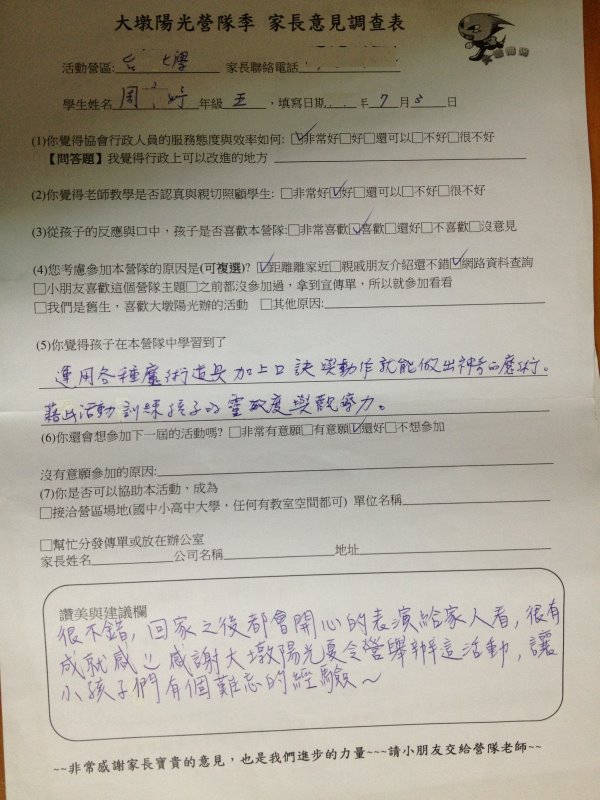 大墩陽光營隊季 家長意見調查表
活動營區: 台 大學 家長聯絡電話
學生姓名 周 婷 年級 五 ，填寫日期 年 7 月 8 日
(1)你覺得協會行政人員的服務態度與效率如何: ☑非常好□好□還可以□不好□很不好
【問答題】我覺得行政上可以改進的地方
(2)你覺得老師教學是否認真與親切照顧學生: □非常好☑好□還可以□不好□很不好
(3)從孩子的反應與口中，孩子是否喜歡本營隊:□非常喜歡☑喜歡□還好□不喜歡□沒意見
(4)您考慮參加本營隊的原因是(可複選)? ☑距離離家近□親戚朋友介紹還不錯☑網路資料查詢
□小朋友喜歡這個營隊主題□之前都沒參加過，拿到宣傳單，所以就參加看看
□我們是舊生，喜歡大墩陽光辦的活動 □其他原因:
(5)你覺得孩子在本營隊中學習到了
運用各種魔術道具加上口訣與動作就能做出神奇的魔術。
藉此活動訓練孩子的靈敏度與觀察力。
(6)你還會想參加下一屆的活動嗎? □非常有意願□有意願☑還好□不想參加
沒有意願參加的原因:
(7)你是否可以協助本活動，成為
□接洽營區場地(國中小高中大學，任何有教室空間都可) 單位名稱
□幫忙分發傳單或放在辦公室
家長姓名 公司名稱 地址
讚美與建議欄
很不錯，回家之後都會開心的表演給家人看，很有
成就感 感謝大墩陽光夏令營舉辦這活動，讓
小孩子們有個難忘的經驗～
~~非常感謝家長寶貴的意見，也是我們進步的力量~~~請小朋友交給營隊老師~~